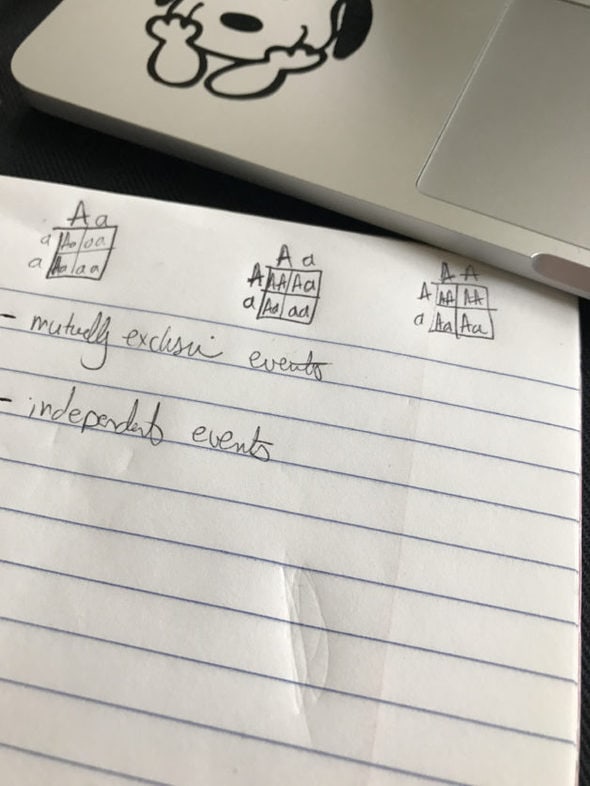 A a
a Aa aa
a Aa aa
A a
A AA Aa
a Aa aa
A A
A AA AA
a Aa Aa
- mutually exclusiv events
- independent events